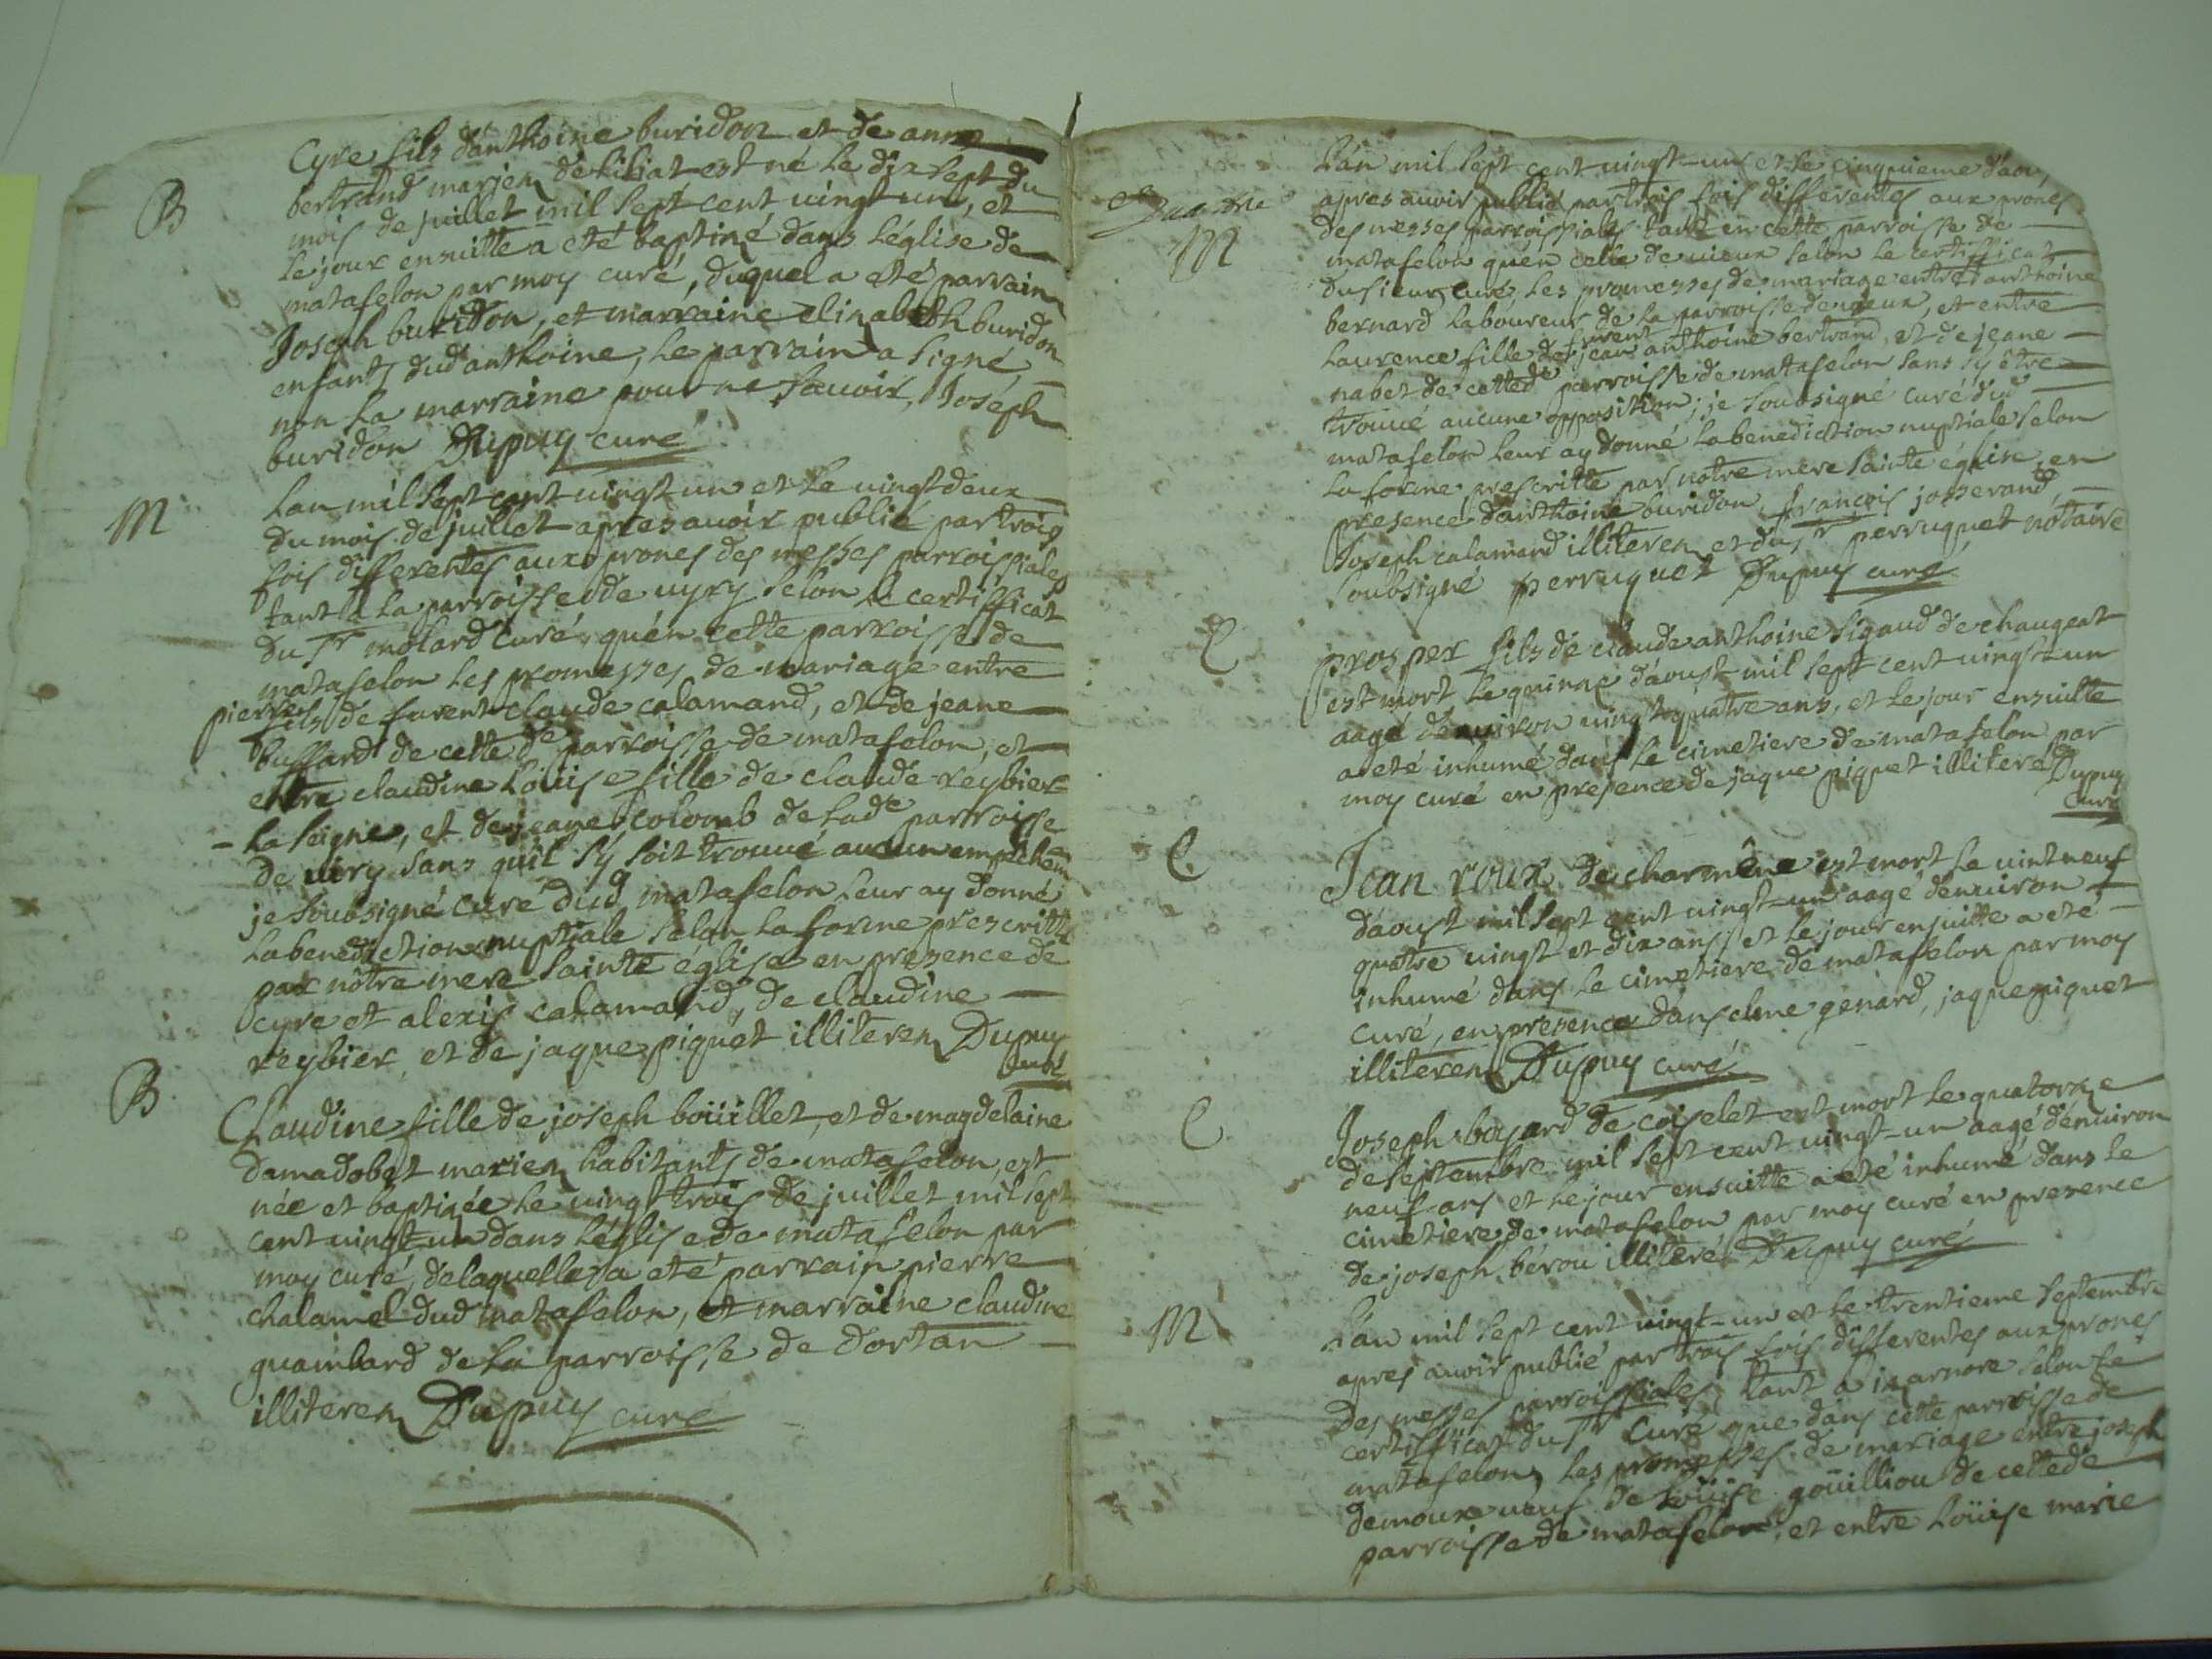 B
Cyre fils d'anthoine buridon et de anne
bertrand mariez de siliat est né le dix sept du
mois de juillet mil sept cent vingt un, et
le jour ensuitte a eté baptizé dans léglise de
matafelon par moy curé, duquel a eté parrain
Joseph buridon, et marraine elizabeth buridon
enfants dud anthoine, le parrain a signé,
non la marraine pour ne sçavoir, Joseph
buridon Dupuy curé
M
Lan mil sept cent vingt un et le vingt deux
du mois de juillet apres avoir publié par trois
fois differentes aux prones des messes parroissiales
tant à la parroisse de vyry selon le certifficat
du Sr molard curé, qu'en cette parroisse de
matafelon les promesses de mariage entre
pierre fils de furent claude calamand, et de jeane
buffard de cette de parroisse de matafelon, et
entre claudine Loüise fille de claude reybier
la seigne, et de jeane colomb de lade parroisse
de viry sans quil s'y soit trouvé aucun empechem
je soubsigné curé dud matafelon leur ay donné
la benediction nuptiale selon la forme prescritte
par nôtre mere sainte église en presence de
cyre et alexis calamand, de claudine
reybier, et de jaque piquet illiterez Dupuy
curé
B
Claudine fille de joseph boüillet, et de magdelaine
damadobet mariez habitants de matafelon, est
née et baptizée le vingt trois de juillet mil sept
cent vingt un dans léglise de matafelon par
moy curé, de laquelle a eté parrain pierre
chalamel dud matafelon, et marraine claudine
guambard de la parroisse de dortan
illiterez Dupuy curé
Lan mil sept cent vingt-un et le cinquieme d'aou
apres avoir publié par trois fois differentes aux prones
M
des messes parroissiales tant en cette parroisse de
matafelon qu'en celle de vieux selon le certifficat
du sieur curé, les promesses de mariage entre anthoine
bernard laboureur de la parroisse de vieux, et entre
Laurence fille de furent jean anthoine bertrand, et de jeane
nabet de cettede parroisse de matafelon sans s'y être
trouvé aucune opposition; je soubsigné curé dud
matafelon leur ay donné la benediction nuptiale selon
la forme prescritte par nôtre mere sainte église, en
presence d'anthoine buridon, françois josserand,
Joseph calamand illiterez et du Sr perruquet notaire
soubsigné perruquet Dupuy curé
prosper fils de claude anthoine sigaud de chaugeat
est mort le quinze d'aoust mil sept cent vingt-un
aagé denviron vingt quatre ans, et le jour ensuitte
a eté inhumé dans le cimetiere de matafelon par
moy curé en presence de jaque piquet illiteré Dupuy
curé
Jean roux de charmêne est mort le vint neuf
d'aoust mil sept cent vingt-un aagé denviron
quatre vingt et dix ans, et le jour ensuitte a eté
inhumé dans le cimetiere de matafelon par moy
curé, en presence d'anselme genard, jaque piquet
illiterez Dupuy curé
Joseph boyard de coiselet est mort le quatorze
de septembre mil sept cent vingt-un aagé denviron
neuf ans et le jour ensuitte a eté inhumé dans le
cimetiere de matafelon par moy curé en presence
de joseph bérou illiteré Dupuy curé
M
L'an mil sept cent vingt-un et le trentieme septembre
apres avoir publié par trois fois differentes aux prones
des messes parroissiales tant a izarnore selon le
certifficat du Sr Curé que dans cette parroisse de
matafelon, les promesses de mariage entre joseph
demoux veuf de Loüise goüilliou de cettede
parroisse de matafelon, et entre Loüise marie